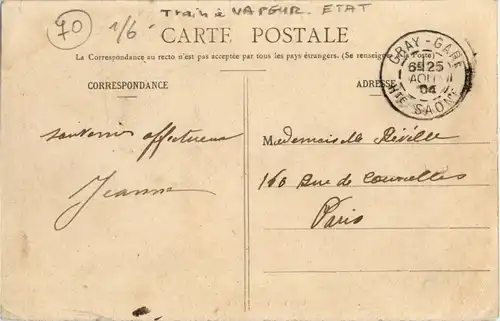 Train à VAPEUR. ETAT
70
1/6
CARTE POSTALE
La Correspondance au recto n'est pas acceptée par tous les pays étrangers. (Se renseigner à la Poste)
CORRESPONDANCE
ADRESSE
GRAY-GARE
6E 25
AOUT
04
HTE SAONE
souvenir affectueux
Jeanne
Mademoiselle Réville
160 Rue de Courcelles
Paris